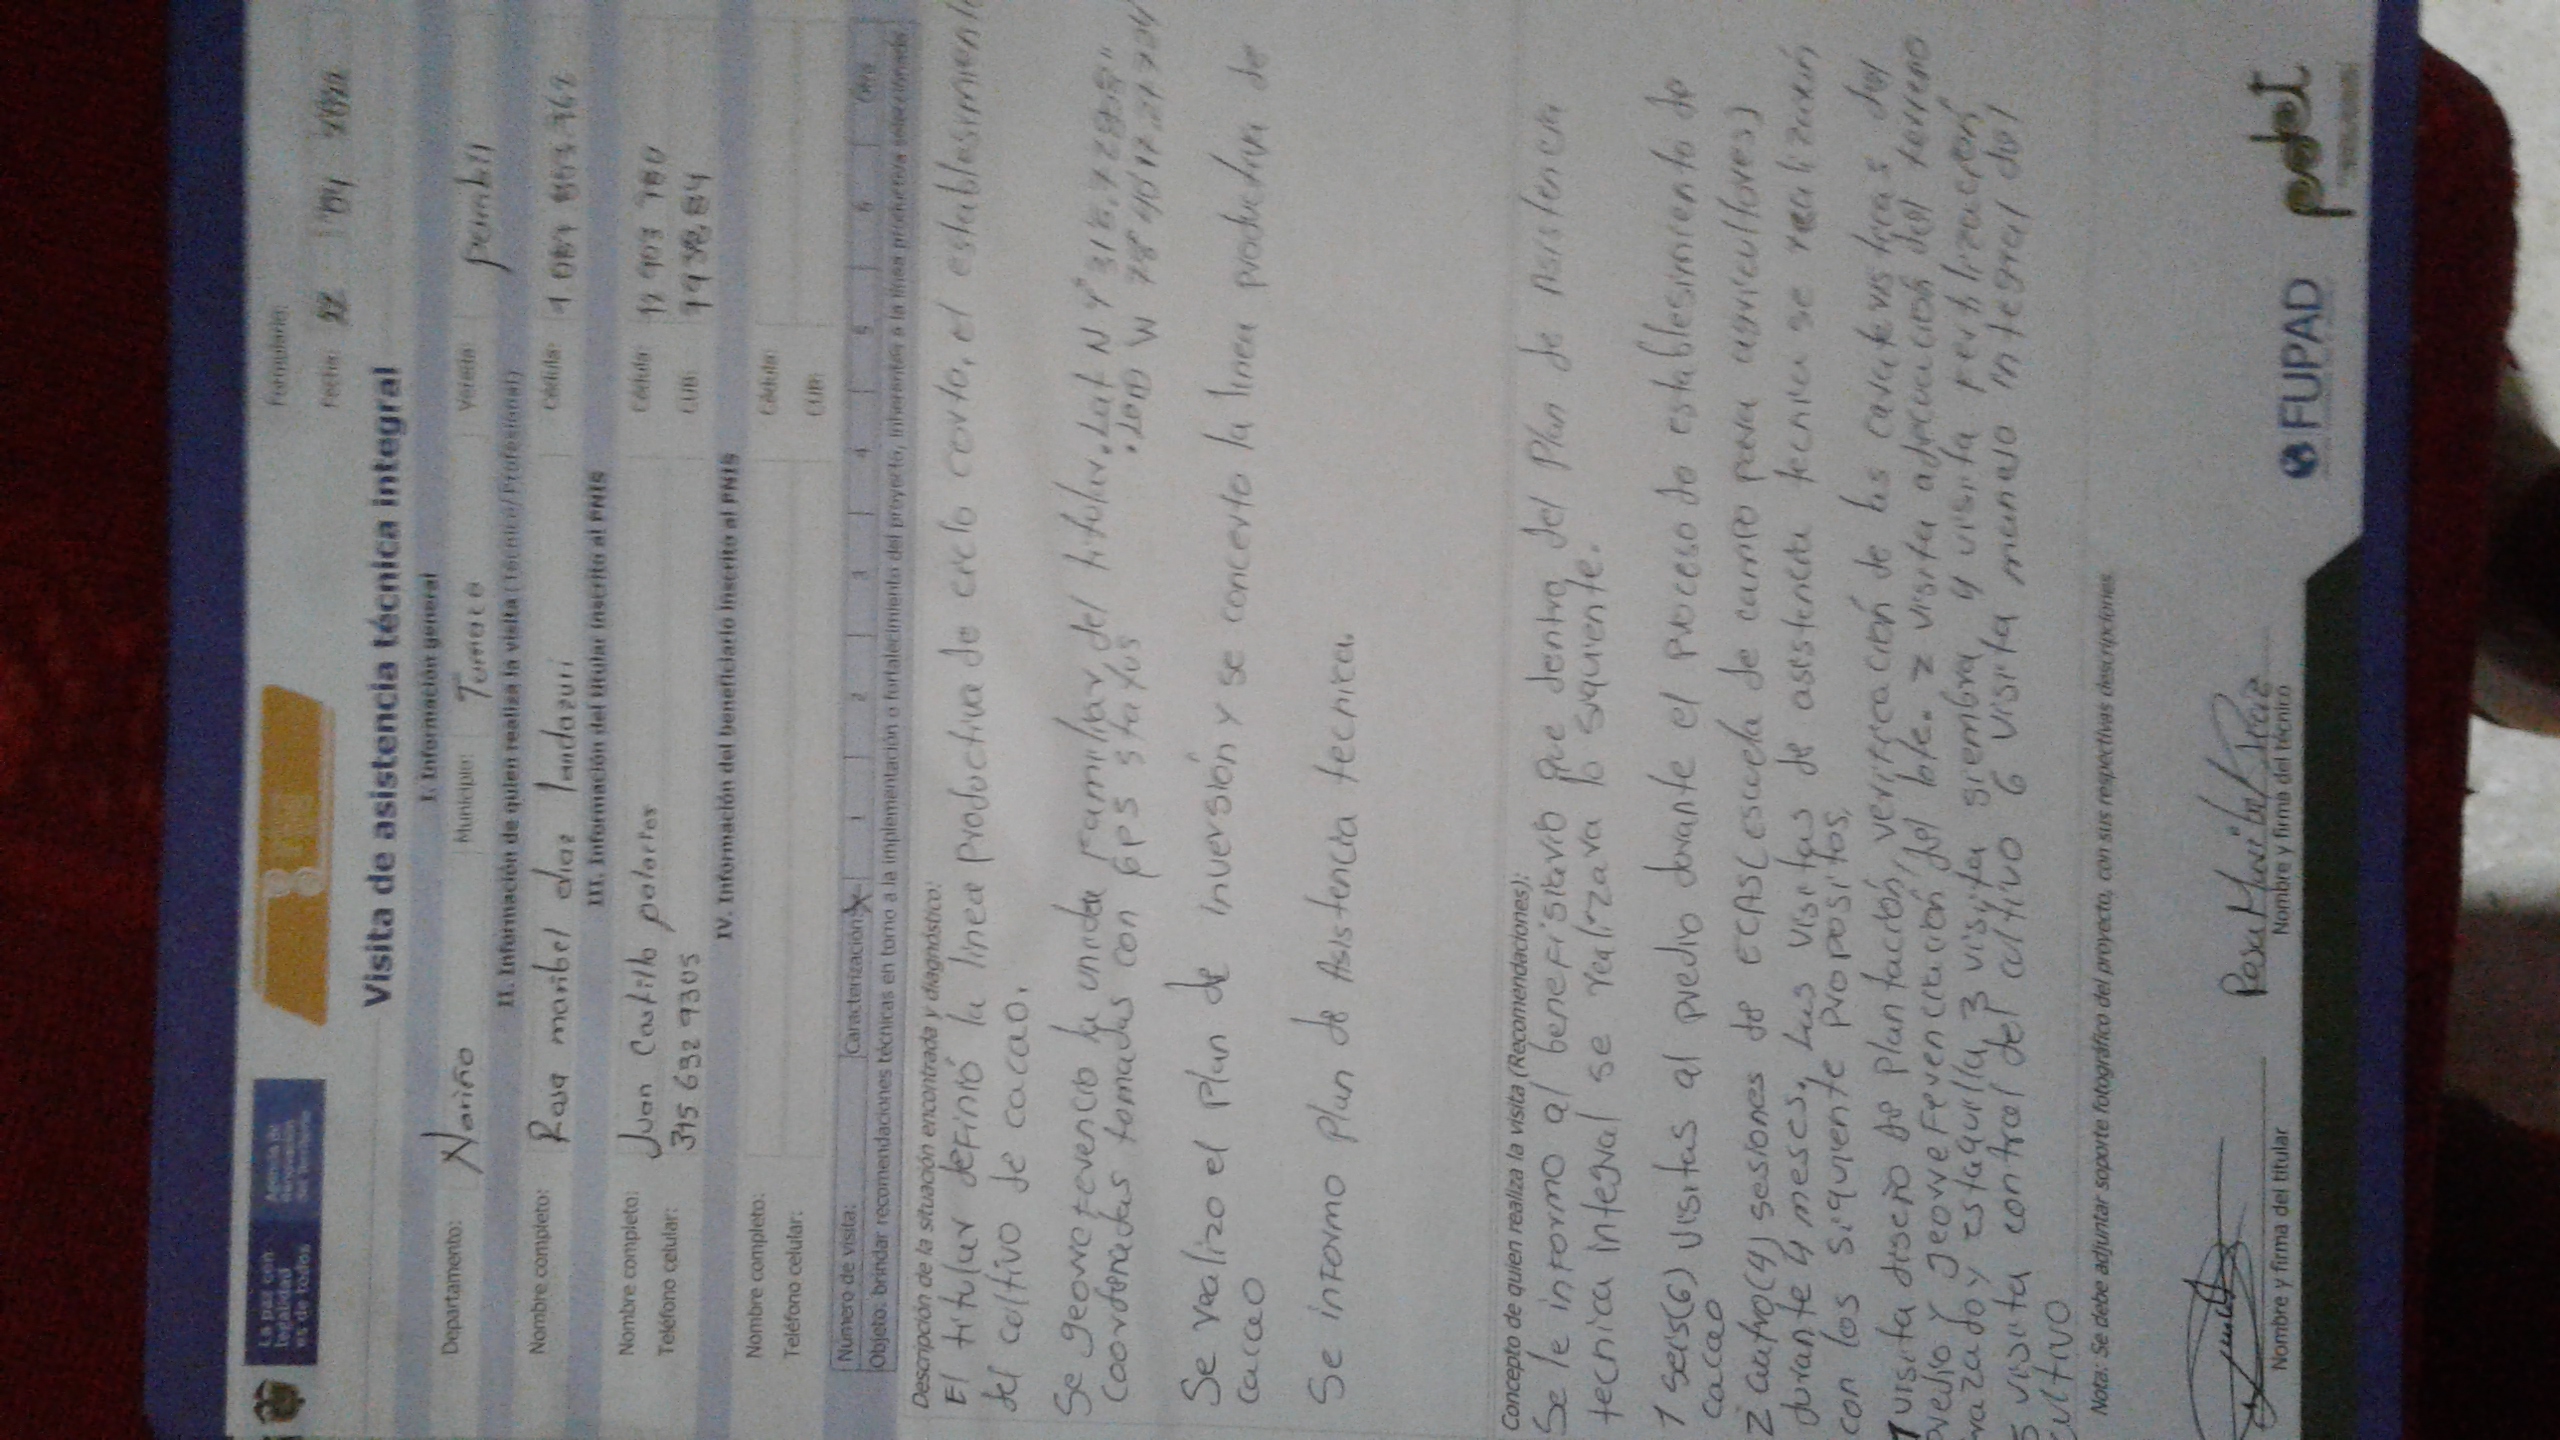 La paz con legalidad es de todos
Agencia de Renovación del Territorio
Formulario:
Fecha: 22 04
Visita de asistencia técnica integral
I. Información general
Departamento: Nariño Municipio: Tumaco Vereda:
II. Información de quien realiza la visita (Técnico/Profesional)
Nombre completo: Rosa maribel diaz landazuri Cédula:
III. Información del titular inscrito al PNIS
Nombre completo: Juan Castillo palacios Cédula: 12 903 780
Teléfono celular: 315 692 9305 CUB:
IV. Información del beneficiario inscrito al PNIS
Nombre completo: Cédula:
Teléfono celular: CUB:
Número de visita: Caracterización X 1 2 3 4 5 6 Otra
Objeto: brindar recomendaciones técnicas en torno a la implementación o fortalecimiento del proyecto, inherentes a la línea productiva seleccionada
Descripción de la situación encontrada y diagnóstico:
El titular definió la linea productiva de ciclo corto, el establesimiento
del coltivo de cacao.
Se georreferencio la unidad familiar del titular, Lat N
coordenadas tomadas con GPS status .LonD W
Se realizo el plan de inversión y se concerto la linea productiva de
cacao
Se informo plan de Asistencia tecnica.
Concepto de quien realiza la visita (Recomendaciones):
Se le informo al benefisitario que dentro del Plan de Asistencia
tecnica integral se realizara lo siquiente.
1 seis(6) visitas al predio durante el proceso de establesimiento de
cacao
2 cuatro(4) sesiones de ECAS(escuela de campo para agricultores)
durante 4 meses. Las visitas de asistencia tecnica se realizarán
con los siquiente propositos.
1 visita diseño de plantación, verificación de las del
predio y georreferenciación del lote. 2 visita adecuación del terreno
trazado y estaquilla 3 visita siembra 4 visita fertilización
5 visita control del cultivo 6 visita manejo integral del
cultivo
Nota: Se debe adjuntar soporte fotográfico del proyecto, con sus respectivas descripciones.
Rosa Maribel
Nombre y firma del titular Nombre y firma del técnico
FUPAD
pdet